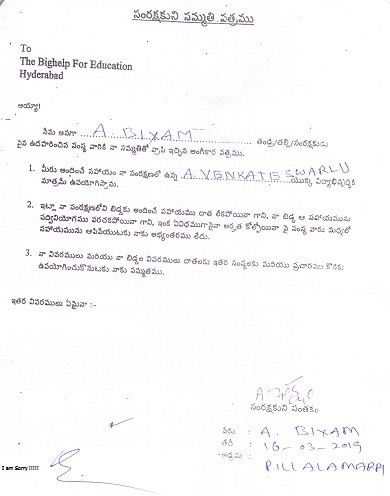 సంరక్షకుని సమ్మతి పత్రము
To
The Bighelp For Education
Hyderabad
అయ్యా!
నేను అనగా A. BIXAM తండ్రి/తల్లి/సంరక్షకుడు
పైన ఉదహరించిన సంస్థ వారికి నా సమ్మతితో వ్రాసి ఇచ్చిన అంగీకార పత్రము.
1. మీరు అందించే సహాయం నా సంరక్షణలో ఉన్న A VENKATESWARLU యొక్క విద్యాభివృద్ధికి
మాత్రమే ఉపయోగిస్తాను.
2. ఇట్లా నా సంరక్షణలోని బిడ్డకు అందించే సహాయము దాత లేకపోయినా గాని, నా బిడ్డ ఆ సహాయమును
సద్వినియోగము పరచకపోయినా గాని, ఇంక ఏవిధముగానైనా అర్హత కోల్పోయినా పై సంస్థ వారు మధ్యలో
సహాయమును ఆపివేయుటకు నాకు అభ్యంతరము లేదు.
3. నా వివరములు మరియు నా బిడ్డల వివరములు దాతలకు ఇతర సంస్థలకు మరియు ప్రచారము కొరకు
ఉపయోగించుకొనుటకు నాకు సమ్మతము.
ఇతర వివరములు ఏమైనా :-
సంరక్షకుని సంతకం
పేరు : A. BIXAM
తేదీ : 16-03-2019
అడ్రసు : PILLALAMARRI
I am Sorry !!!!!